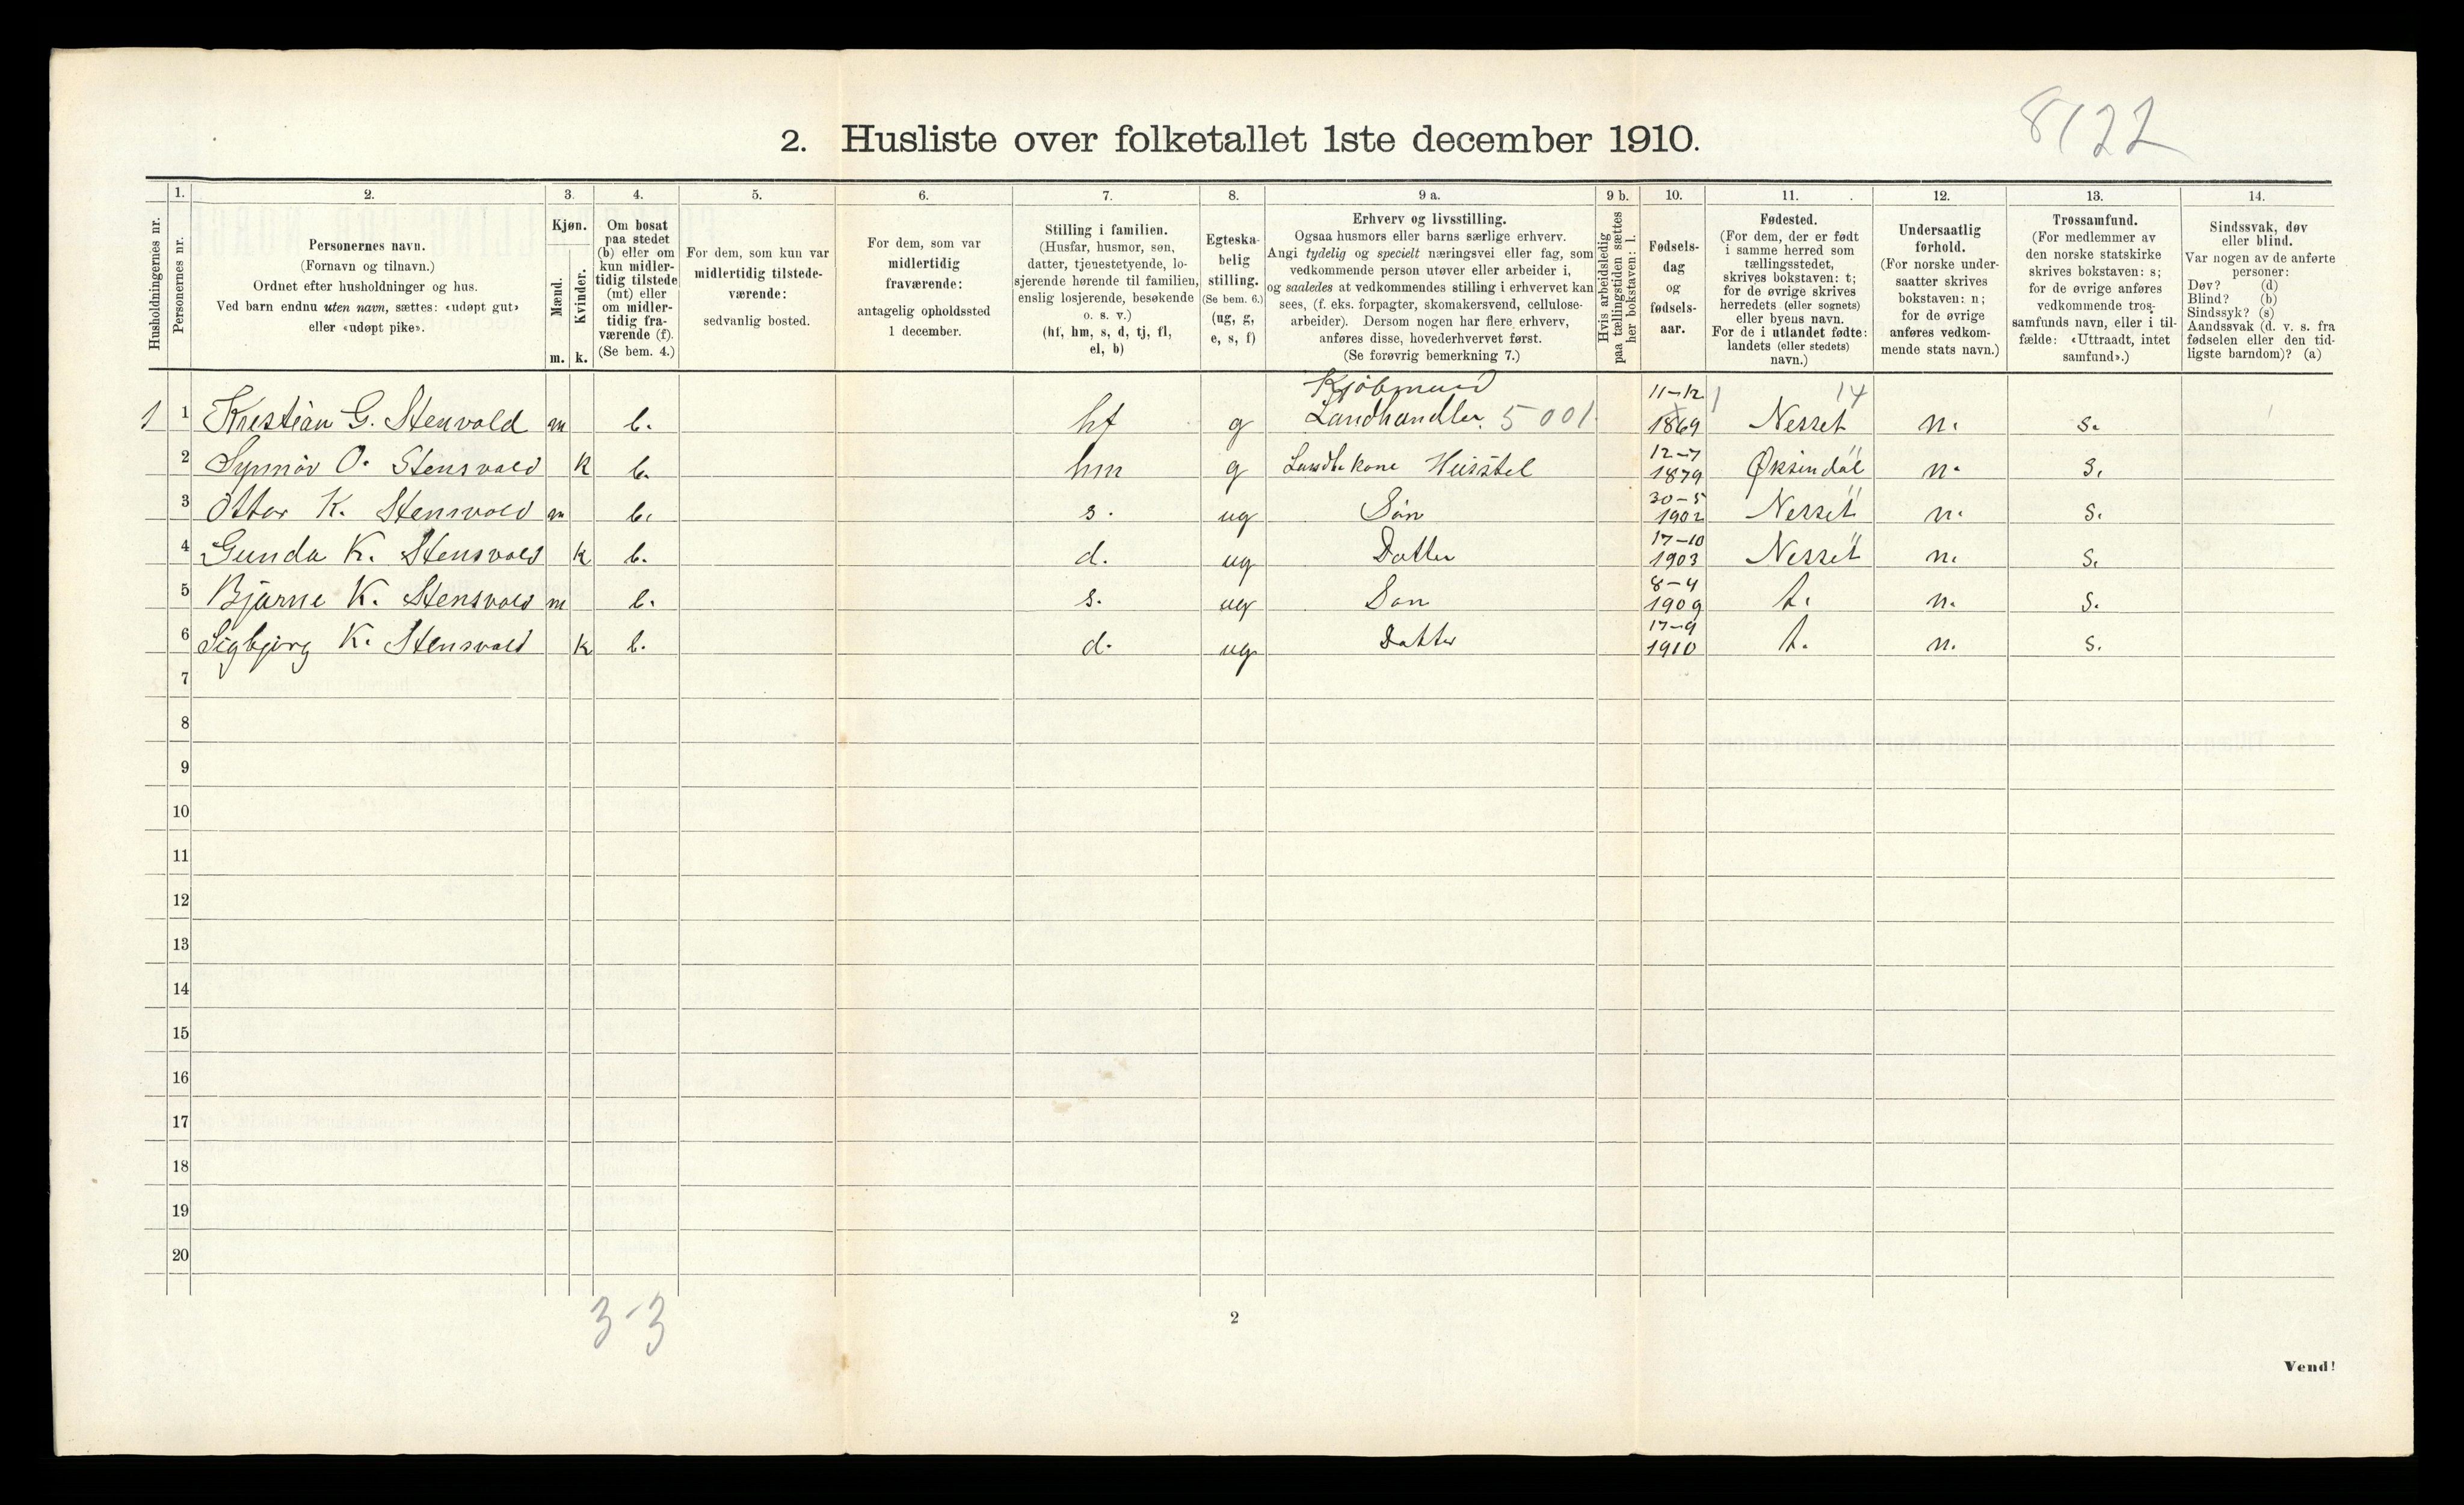 8/22
2. Husliste over folketallet 1ste december 1910.
1. 2. 3. 4. 5. 6. 7. 8. 9 a. 9 b. 10. 11. 12. 13. 14.
Husholdningernes nr.
Personernes nr.
Personernes navn.
(Fornavn og tilnavn.)
Ordnet efter husholdninger og hus.
Ved barn endnu uten navn, sættes: «udøpt gut»
eller «udøpt pike».
Kjøn.
Mænd.
Kvinder.
m. k.
Om bosat
paa stedet
(b) eller om
kun midler-
tidig tilstede
(mt) eller
om midler-
tidig fra-
værende (f).
(Se bem. 4.)
For dem, som kun var
midlertidig tilstede-
værende:
sedvanlig bosted.
For dem, som var
midlertidig
fraværende:
antagelig opholdssted
1 december.
Stilling i familien.
(Husfar, husmor, søn,
datter, tjenestetyende, lo-
sjerende hørende til familien,
enslig losjerende, besøkende
o. s. v.)
(hf, hm, s, d, tj, fl,
el, b)
Egteska-
belig
stilling.
(Se bem. 6.)
(ug, g,
e, s, f)
Erhverv og livsstilling.
Ogsaa husmors eller barns særlige erhverv.
Angi tydelig og specielt næringsvei eller fag, som
vedkommende person utøver eller arbeider i,
og saaledes at vedkommendes stilling i erhvervet kan
sees, (f. eks. forpagter, skomakersvend, cellulose-
arbeider). Dersom nogen har flere erhverv,
anføres disse, hovederhvervet først.
(Se forøvrig bemerkning 7.)
Hvis arbeidsledig
paa tællingstiden sættes
her bokstaven: l.
Fødsels-
dag
og
fødsels-
aar.
Fødested.
(For dem, der er født
i samme herred som
tællingsstedet,
skrives bokstaven: t;
for de øvrige skrives
herredets (eller sognets)
eller byens navn.
For de i utlandet fødte:
landets (eller stedets)
navn.)
Undersaatlig
forhold.
(For norske under-
saatter skrives
bokstaven: n;
for de øvrige
anføres vedkom-
mende stats navn.)
Trossamfund.
(For medlemmer av
den norske statskirke
skrives bokstaven: s;
for de øvrige anføres
vedkommende tros-
samfunds navn, eller i til-
fælde: «Uttraadt, intet
samfund».)
Sindssvak, døv
eller blind.
Var nogen av de anførte
personer:
Døv? (d)
Blind? (b)
Sindssyk? (s)
Aandssvak (d. v. s. fra
fødselen eller den tid-
ligste barndom)? (a)
Kjøbmand 11-12 14
1 1 Kristian G. Stenvold m b. hf g Landhandler. 5001 1869 Nesset n. s.
12-7 "
2 Synnöv O. Stensvold k b. hm g Landh.kone Husstel 1879 Øksendal n. s.
30-5 "
3 Ottar K. Stensvold m b. s. ug Sön 1902 Nesset n. s.
17-10 "
4 Gunda K. Stensvold k b. d. ug Datter 1903 Nesset n. s.
8-4
5 Bjarne K. Stensvold m b. s. ug Søn 1909 t. n. s.
17-9
6 Sigbjörg K. Stensvold k b. d. ug Datter 1910 t. n. s.
7
8
9
10
11
12
13
14
15
16
17
18
19
20
3-3
2
Vend!